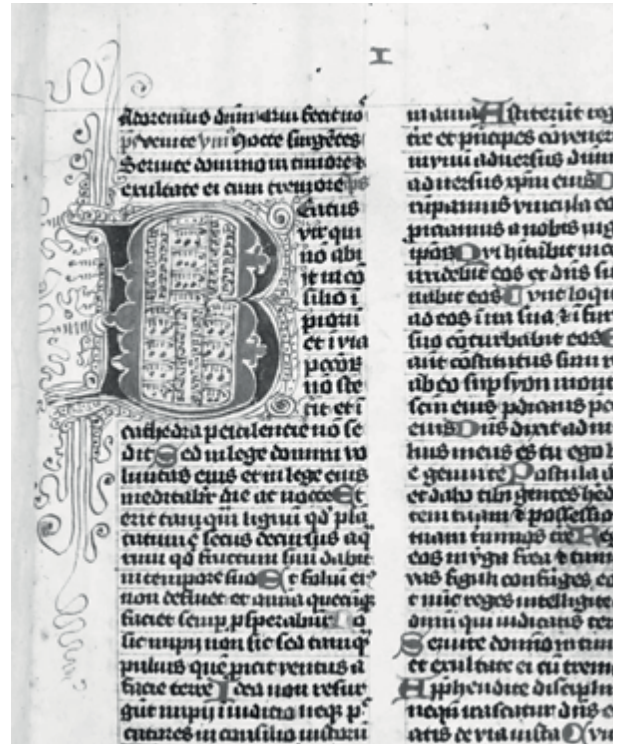 I
Adoremus dnm qui fecit nos
prevenite ymꝰ Nocte surgētes
Servite domino in timore et
exultate ei cum tremore ps
Beatus
vir qui
nō abi
it in cō
silio ī
piorū
et ī via
peccōꝝ
nō ste
tit et ī
cathedra pestilencie nō se
dit Sed in lege domini vo
luntas eius et in lege eius
meditabitʳ die ac nocte Et
erit tanqm lignū qd plā
tatum ē secus decursus aq
rum qd fructum suū dabit
in tempore suo Et foliū eiꝰ
non defluet et omnia quecūqꝫ
faciet semp psperabūt Nō
sic impij non sic sed tamqꝫ
puluis quē proicit ventus a
facie terre Ideo non resur
gūt impij ī iudicio neqꝫ pc
catores in consilio iustorū
in anū Astiterūt reg
tre et pncipes convener
in vnū adversus dnm
adversus xpm eius D
rūpamus vincula eo
piciamus a nobis iug
ipōꝝ Qui hītabit in ce
irridebit eos et dns su
nabit eos Tunc loque
ad eos ī ira sua et ī fur
suo cōturbabit eos E
aūt cōstitutus sum r
ab eo sup syon mont
scm eius pdicans pc
eius Dns dixit ad m
lius meus es tu ego h
e genui te Postula a
et dabo tibi gentes hed
tem tuam et possessio
tuam tminos tre Re
eos in vga ferea et tam
vas figuli confringes eo
t nūc reges intelligite
dimini qui iudicatis ter
Servite domīo in tim
et exultate ei cū trem
Apphendite disciplin
nequn irascatur dns e
atis de via iusta Cū